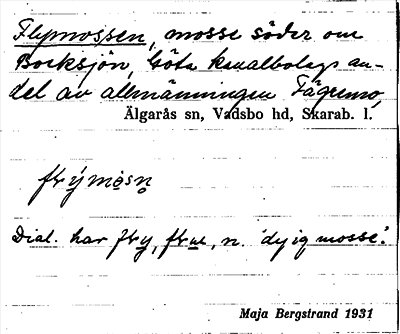 Flymossen, mosse söder om
Bocksjön, Göta kanalbolags an-
del av allmänningen Fägremo,
Älgarås sn, Vadsbo hd, Skarab. l.
flýmòsn
Dial. har fly, n. 'dyig mosse'.
Maja Bergstrand 1931